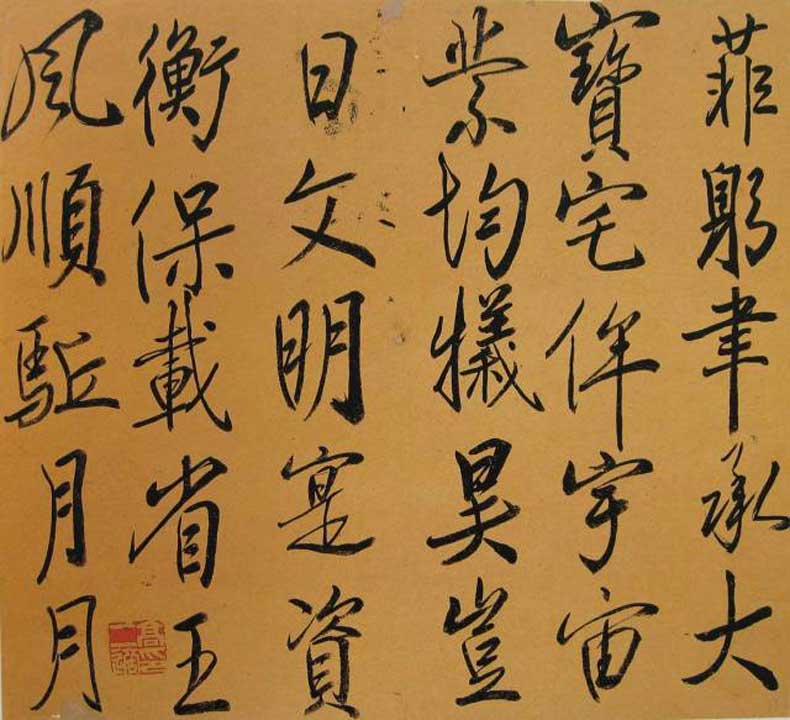 菲躬聿承大
寳宅侔宇宙
業均犧昊豈
日文明寔資
衡保載省王
風順駈月月